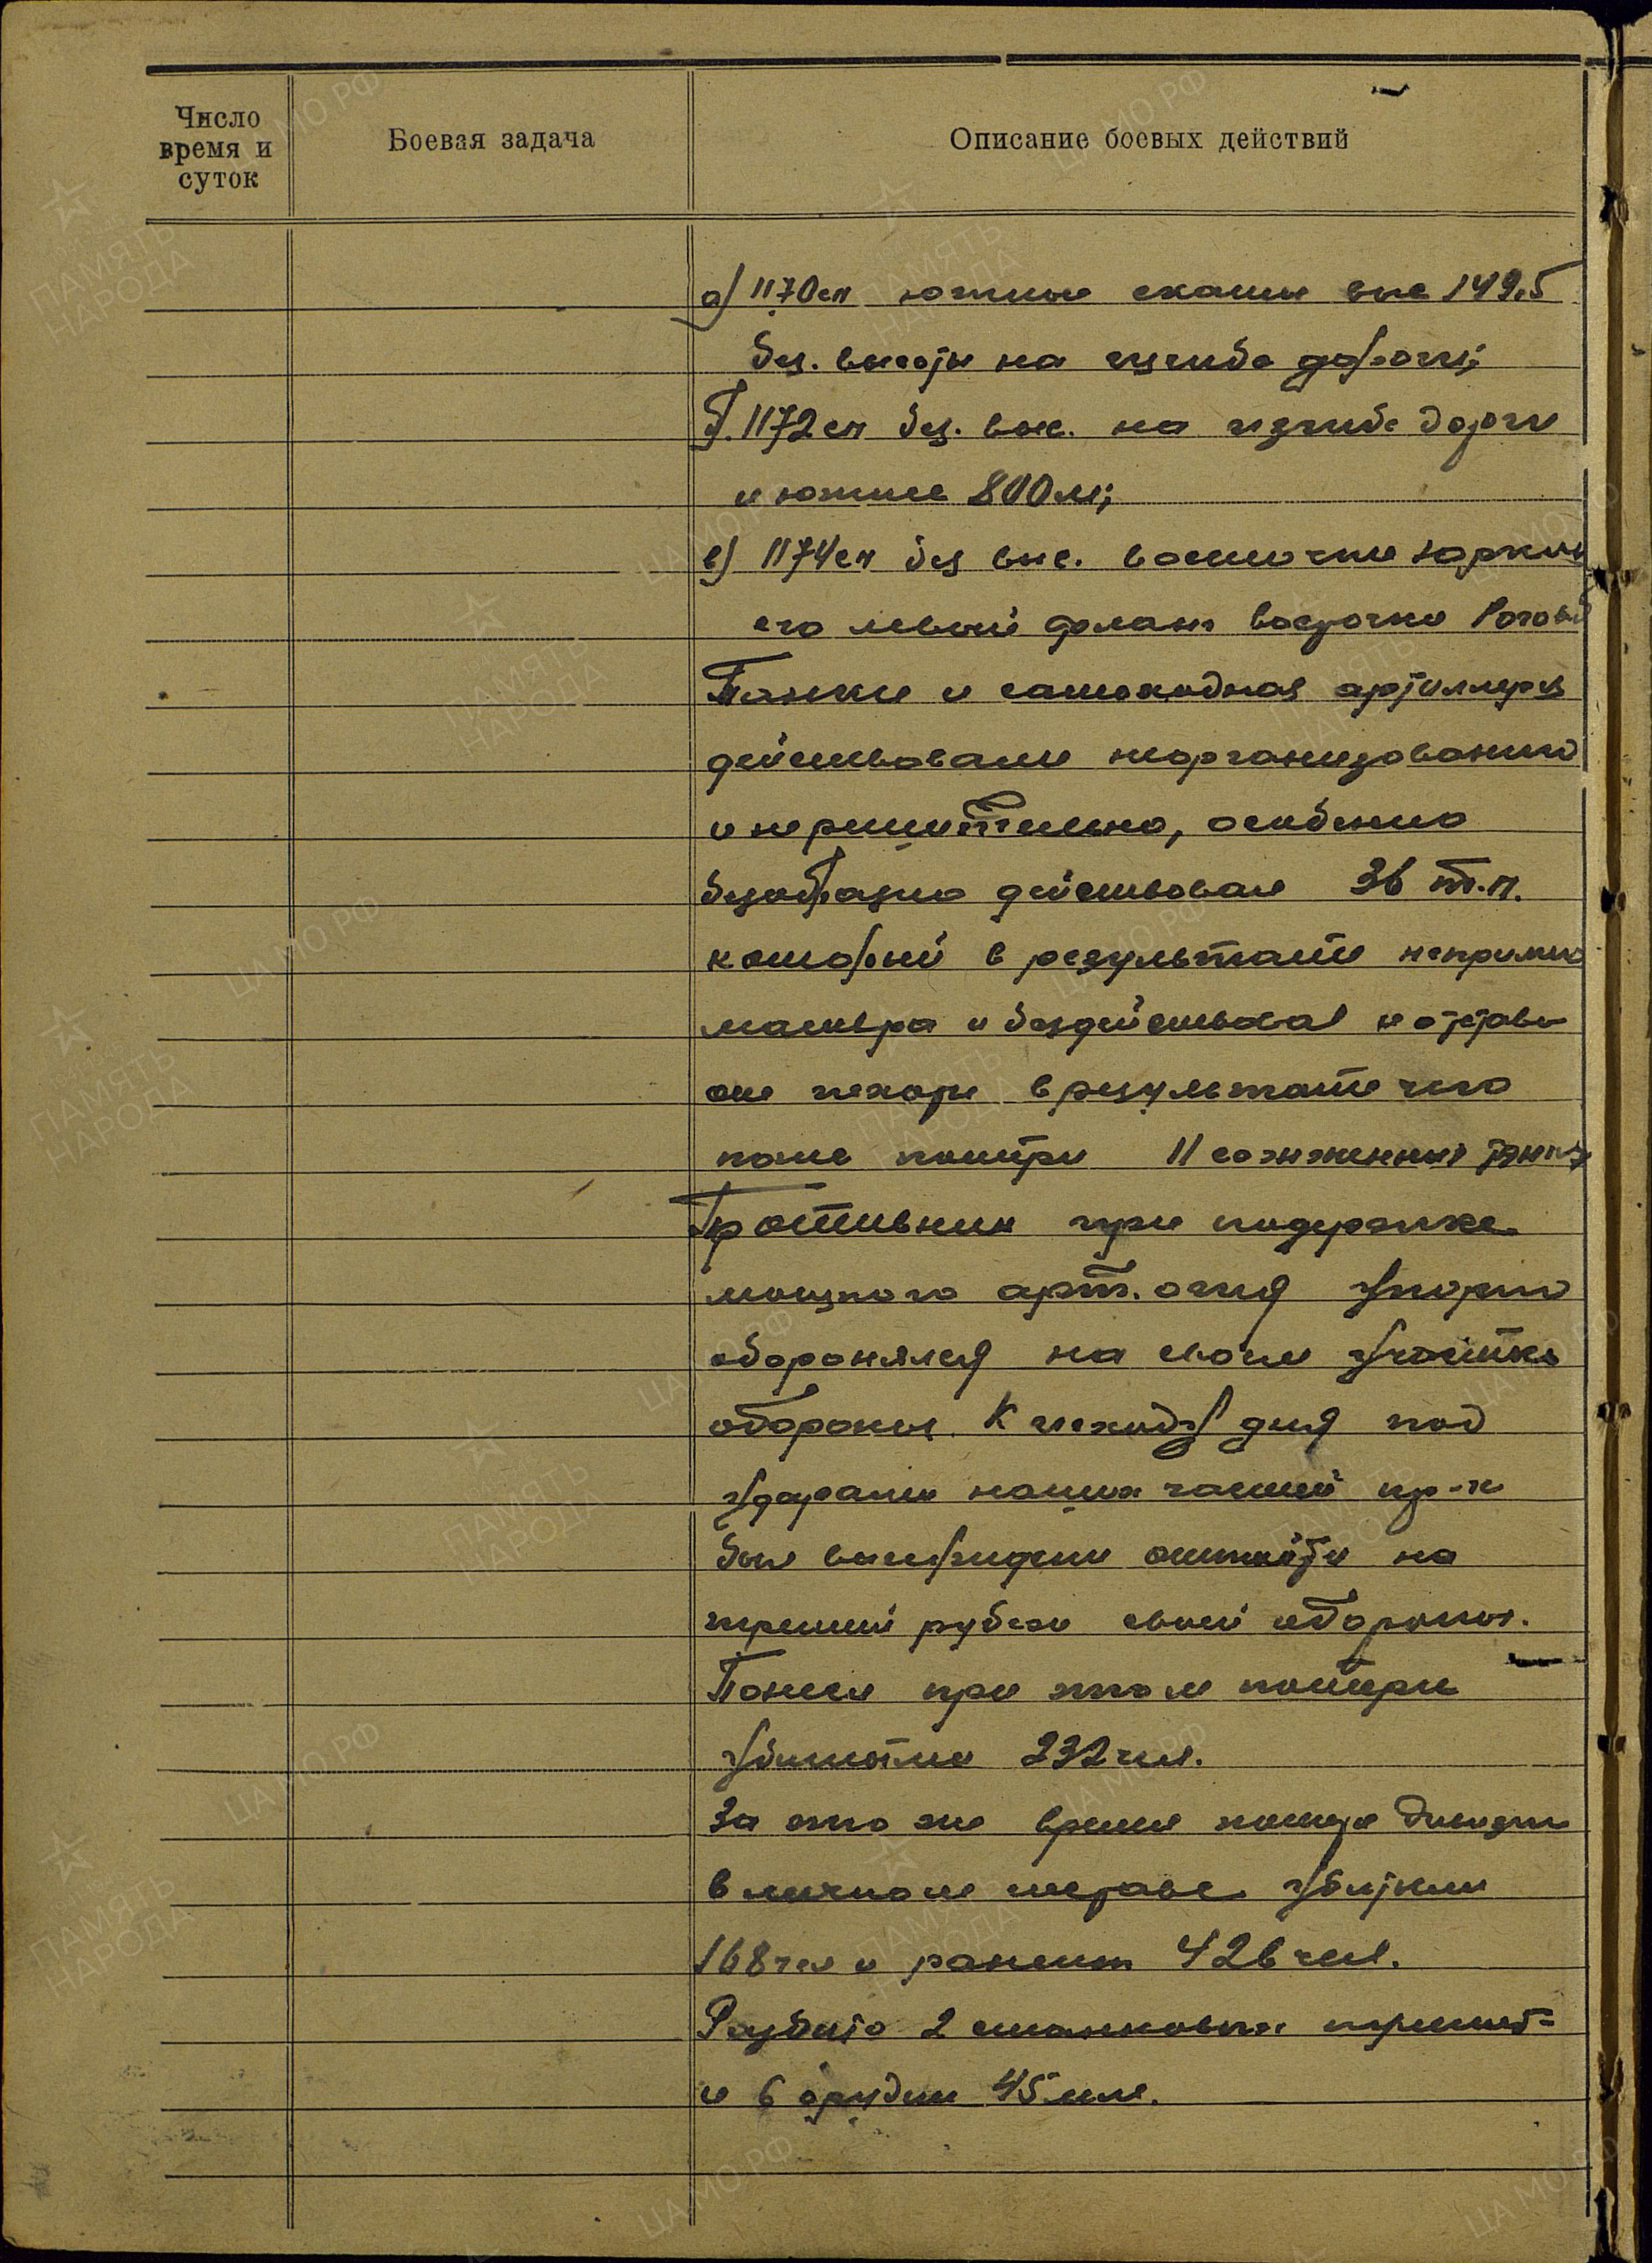 Число
время и
суток
Боевая задача
Описание боевых действий
а) 1170сп южные скаты выс 149,5
без. высоты на изгибе дороги;
б. 1172сп без. выс. на изгибе дороги
и южнее 800м;
в) 1174сп без выс. восточнее
его левый фланг восточнее
Танки и самоходная артиллерия
действовали неорганизованно
и нерешительно, особенно
безобразно действовал 36 т.п.
который в результате
маневра и бездействовал и отстав-
ал пехоты в результате чего
понес потери 11 сожженных танков
Противник при поддержке
мощного арт. огня упорно
оборонялся на своем участке
обороны. К исходу дня под
ударами наших частей пр-к
был вынужден отойти на
третий рубеж своей обороны.
Понеся при этом потери
убитыми 232 чел.
За это же время потери дивизии
в личном составе убитыми
168 чел и ранен 426 чел.
Разбито 2 станковых
и 6 орудий 45 мм.